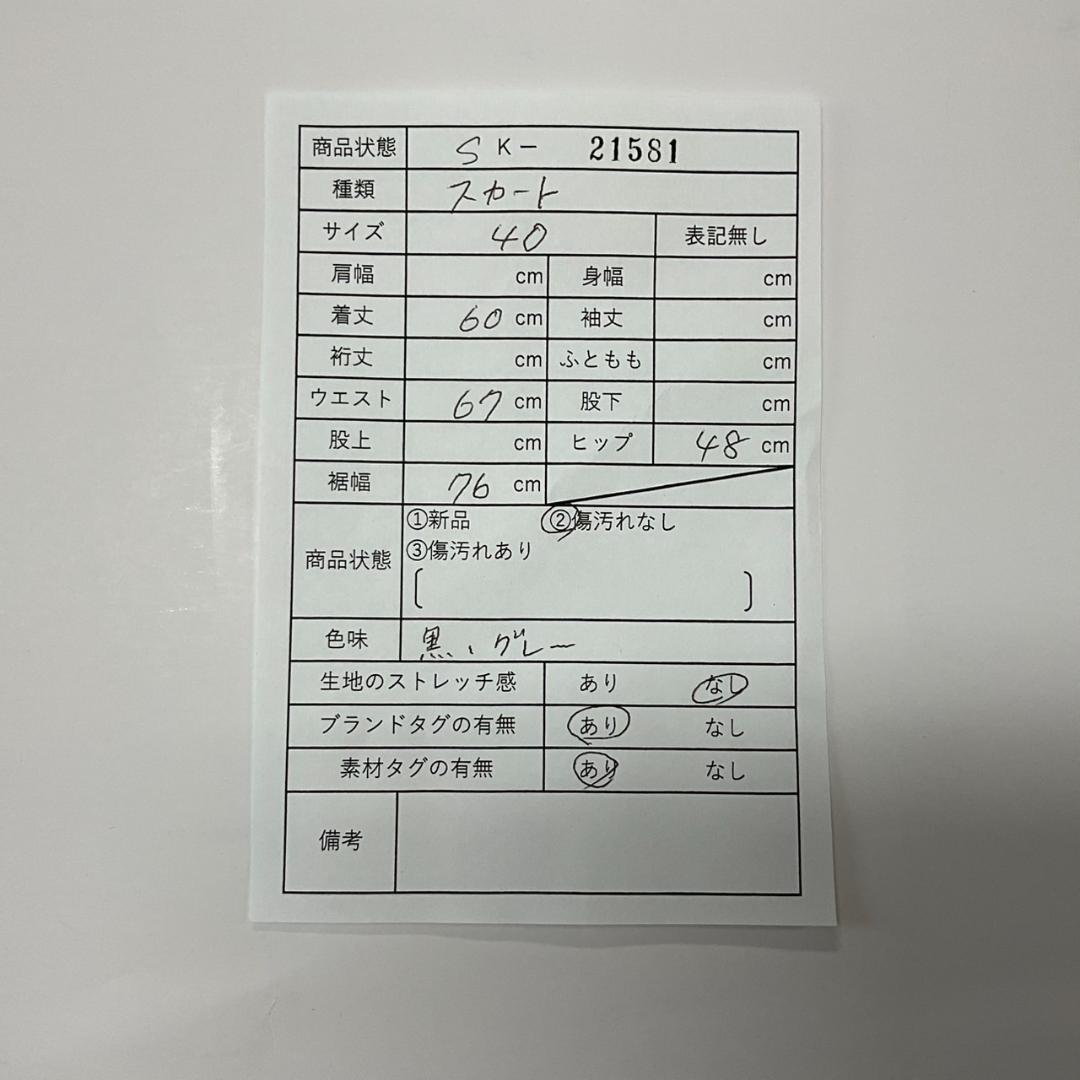 商品状態 S K- 21581
種類 スカート
サイズ 40 表記無し
肩幅 cm 身幅 cm
着丈 60 cm 袖丈 cm
裄丈 cm ふともも cm
ウエスト 67 cm 股下 cm
股上 cm ヒップ 48 cm
裾幅 76 cm
商品状態 ①新品 ②傷汚れなし
③傷汚れあり
[ ]
色味 黒、グレー
生地のストレッチ感 あり なし
ブランドタグの有無 あり なし
素材タグの有無 あり なし
備考